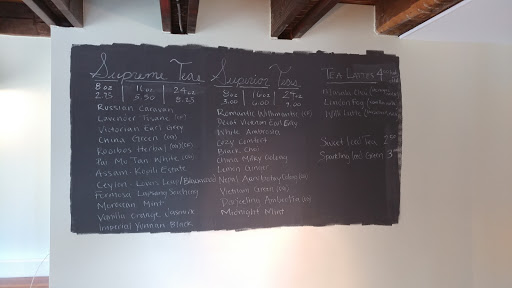 Supreme Teas
8oz | 16oz | 24oz
2.75 | 5.50 | 8.25
Russian Caravan
Lavender Tisane
Victorian Earl Grey
China Green
Rooibos Herbal
Pai Mo Tan White
Assam-Kopili Estate
Ceylon-Lovers Leap/
Formosa Lapsang Souchong
Moroccan Mint
Vanilla Orange Jasmine
Imperial Yunnan Black
Superior Teas
8oz | 16oz | 24oz
3.00 | 6.00 | 9.00
Romantic Willimantic
Decaf Victorian Earl Grey
White Ambrosia
Cozy Comfort
Black Chai
China Milky Oolong
Lemon Ginger
Nepal
Vietnam Green
Darjeeling Ambootia
Midnight Mint
Tea Lattes 4
Masala Chai
London Fog
Sweet Iced Tea 2
Sparkling Iced Green 3